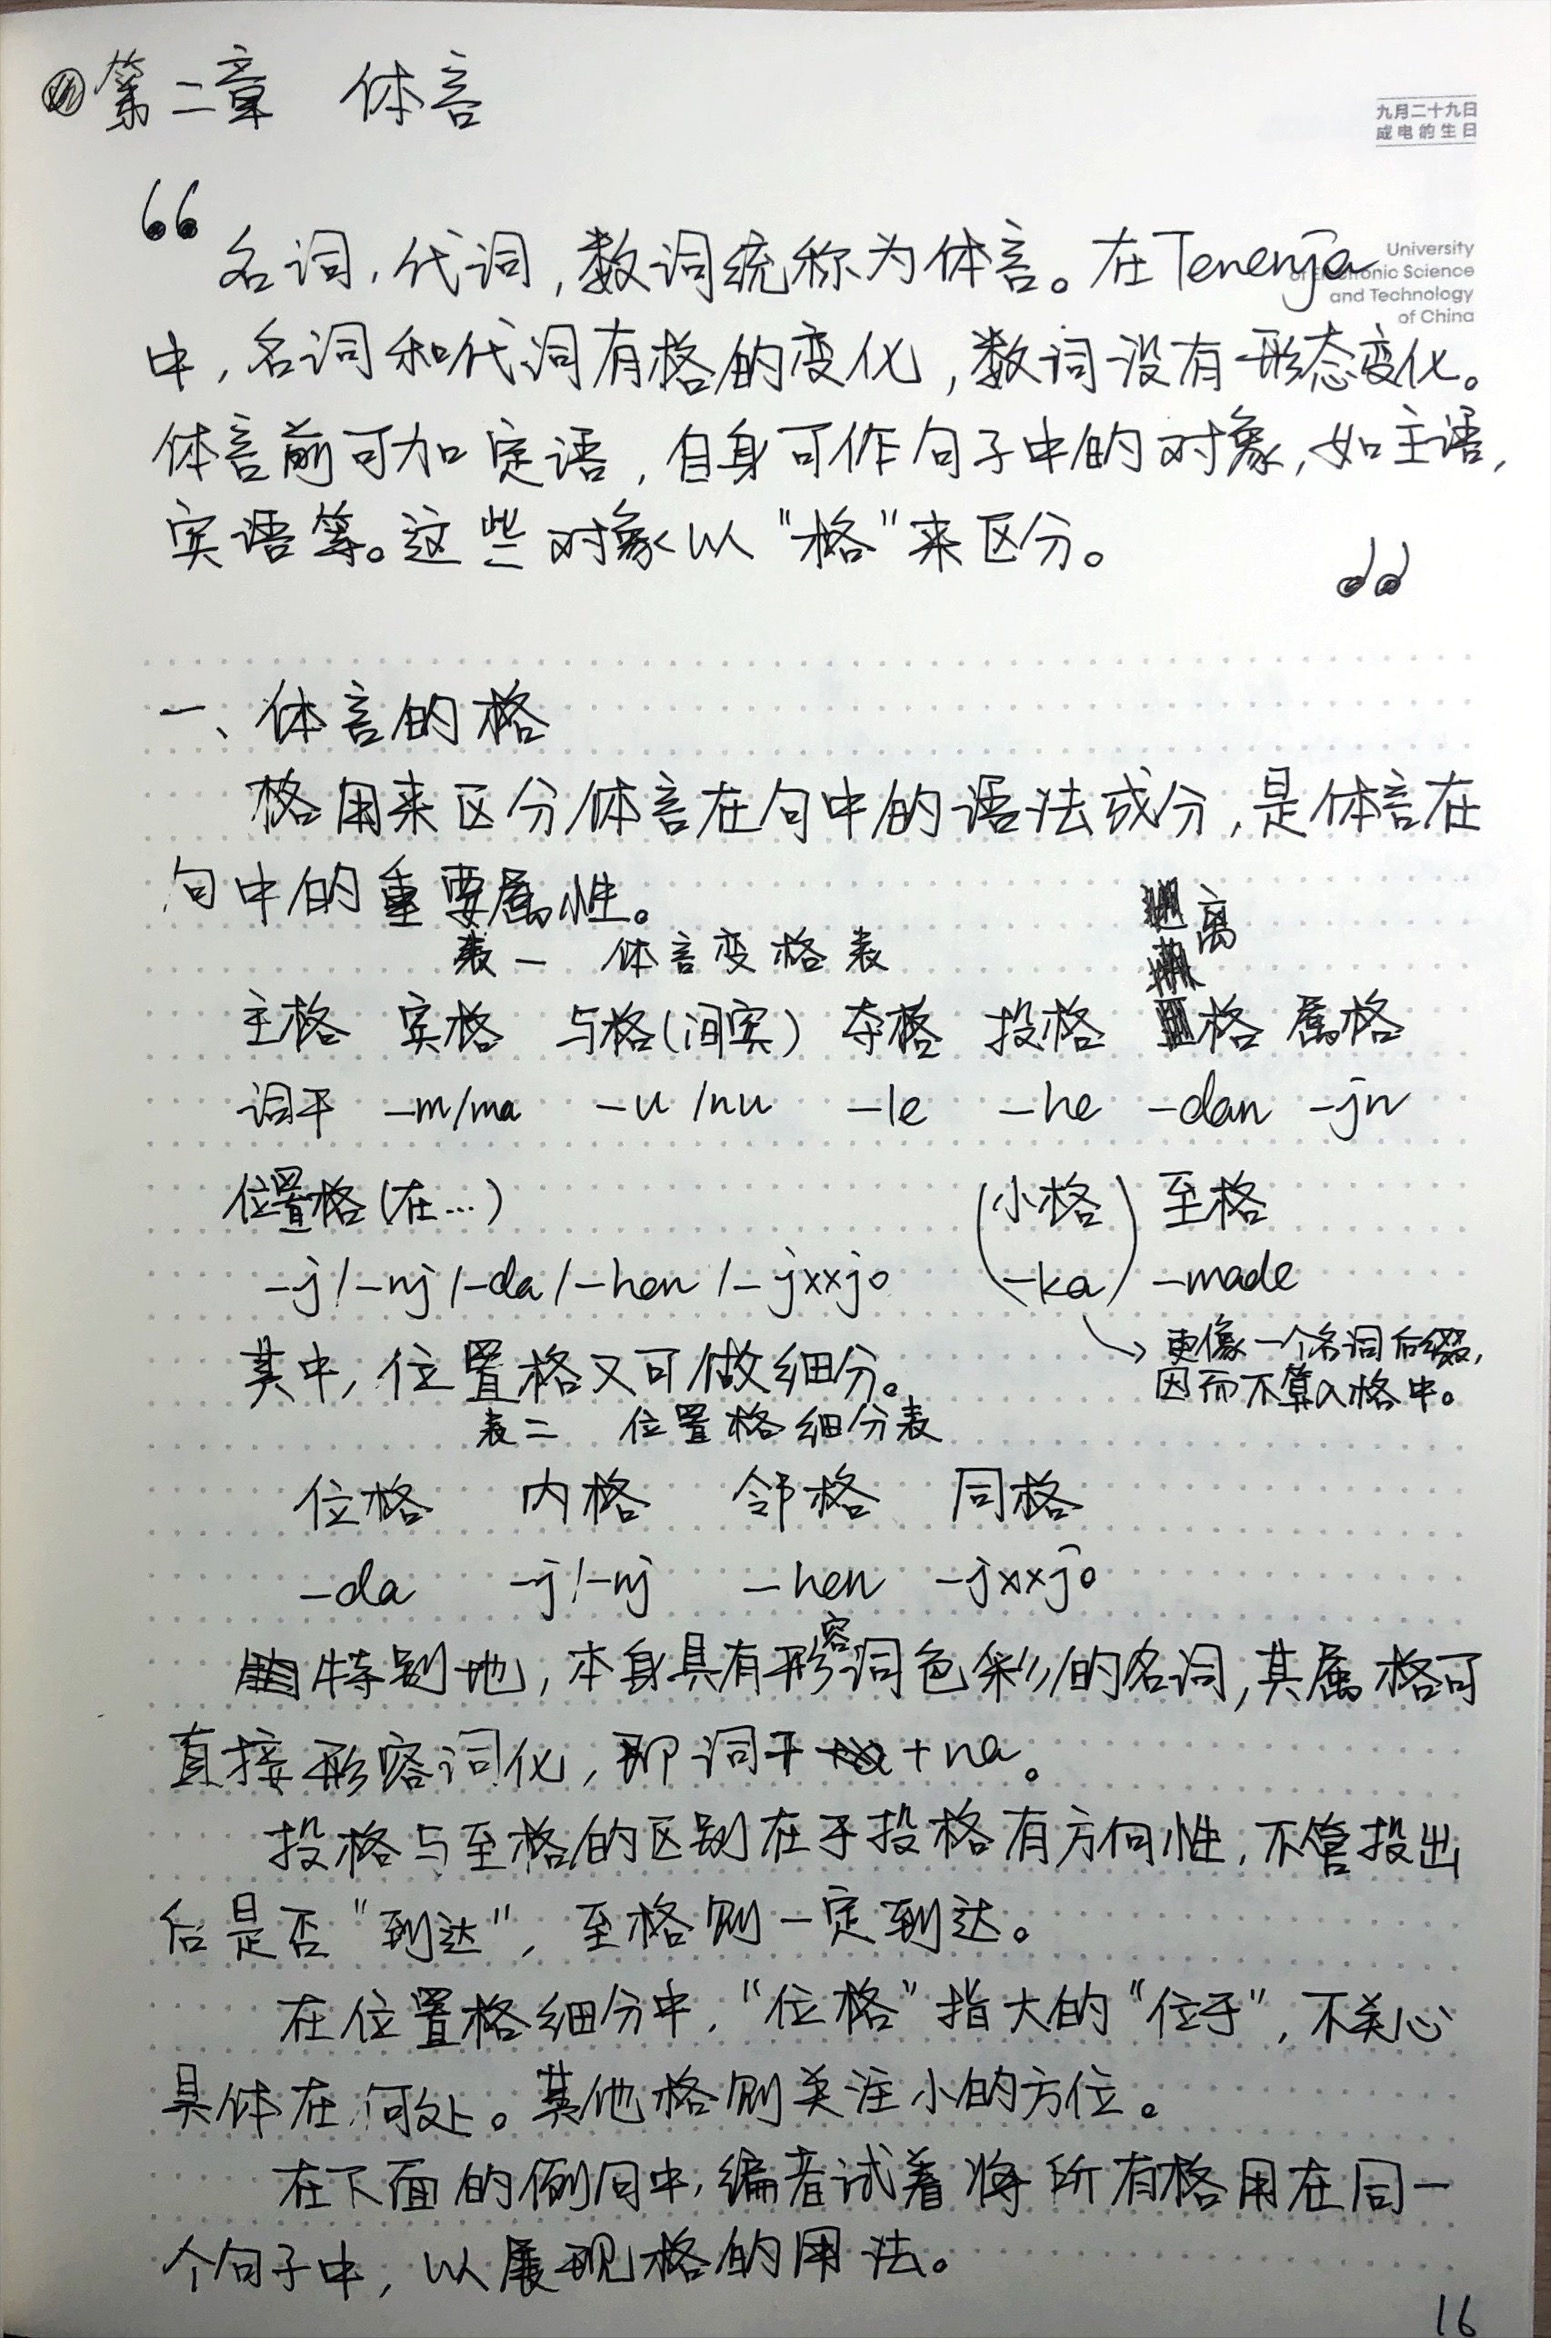 第二章 体言
九月二十九日
成电的生日
“
University
of Electronic Science
and Technology
of China
名词,代词,数词统称为体言。在Tenenja
中,名词和代词有格的变化,数词没有形态变化。
体言前可加定语,自身可作句子中的对象,如主语,
宾语等。这些对象以"格"来区分。
”
一、体言的格
格用来区分体言在句中的语法成分,是体言在
句中的重要属性。
表一 体言变格表
离
主格 宾格 与格(间宾) 夺格 投格 格 属格
词干 -m/ma -u/nu -le -he -dan -jn
位置格(在…) (小格) 至格
-j/-nj/-da/-hen/-jxxjo (-ka) -made
→ 更像一个名词后缀,
其中,位置格又可做细分。
因而不算入格中。
表二 位置格细分表
位格 内格 邻格 同格
-da -j/-nj -hen -jxxjo
特别地,本身具有形容词色彩的名词,其属格可
直接形容词化,即词干+na。
投格与至格的区别在于投格有方向性,不管投出
后是否"到达",至格则一定到达。
在位置格细分中,"位格"指大的"位于",不关心
具体在何处。其他格则关注小的方位。
在下面的例句中,编者试着将所有格用在同一
个句子中,以展现格的用法。
16